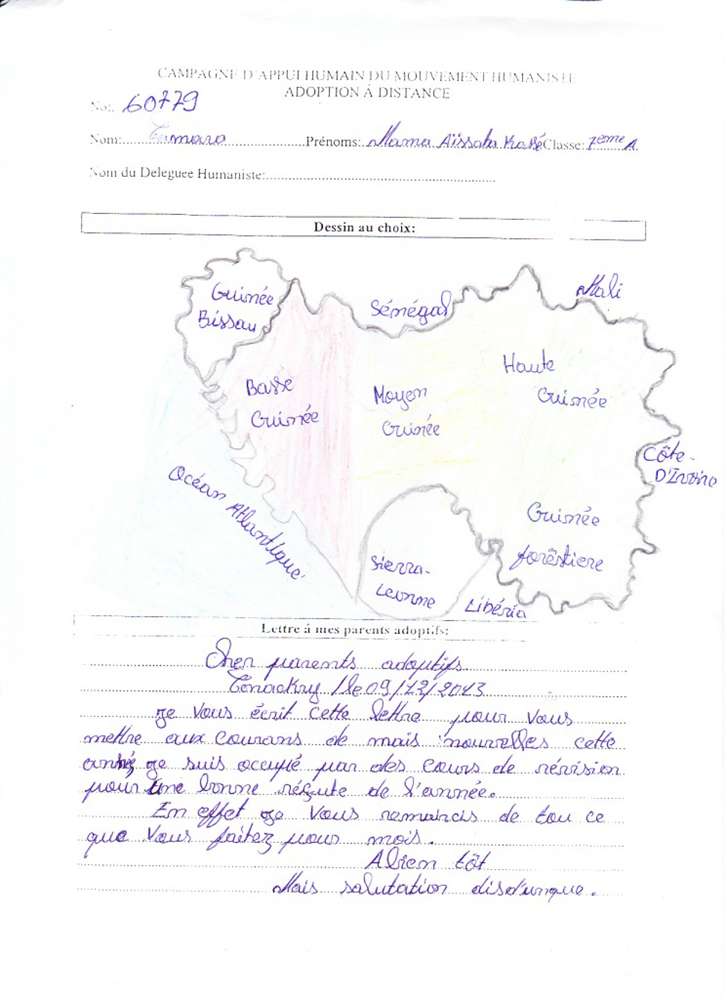 CAMPAGNE D'APPUI HUMAIN DU MOUVEMENT HUMANISTE
ADOPTION Á DISTANCE
No: 60779
Nom: Camara Prénoms: Mama Aïssata Classe: 7ème A
Nom du Deleguee Humaniste:
Dessin au choix:
Guinée
Bissau
Sénégal
Mali
Basse
Guinée
Moyen
Guinée
Haute
Guinée
Côte-
D'Ivoire
Océan Atlantique
Guinée
forêstiere
Sierra-
Leonne
Libéria
Lettre á mes parents adoptifs:
Cher parents adoptifs
Conackry / le 09/12/2013
Je vous écrit cette lettre pour vous
mettre aux courans de mais nouvelles cette
année je suis occupé par des cours de révision
pour une bonne de l'année.
En effet je vous remarcis de tou ce
que vous faitez pour mois.
A bien tôt
Mais salutation